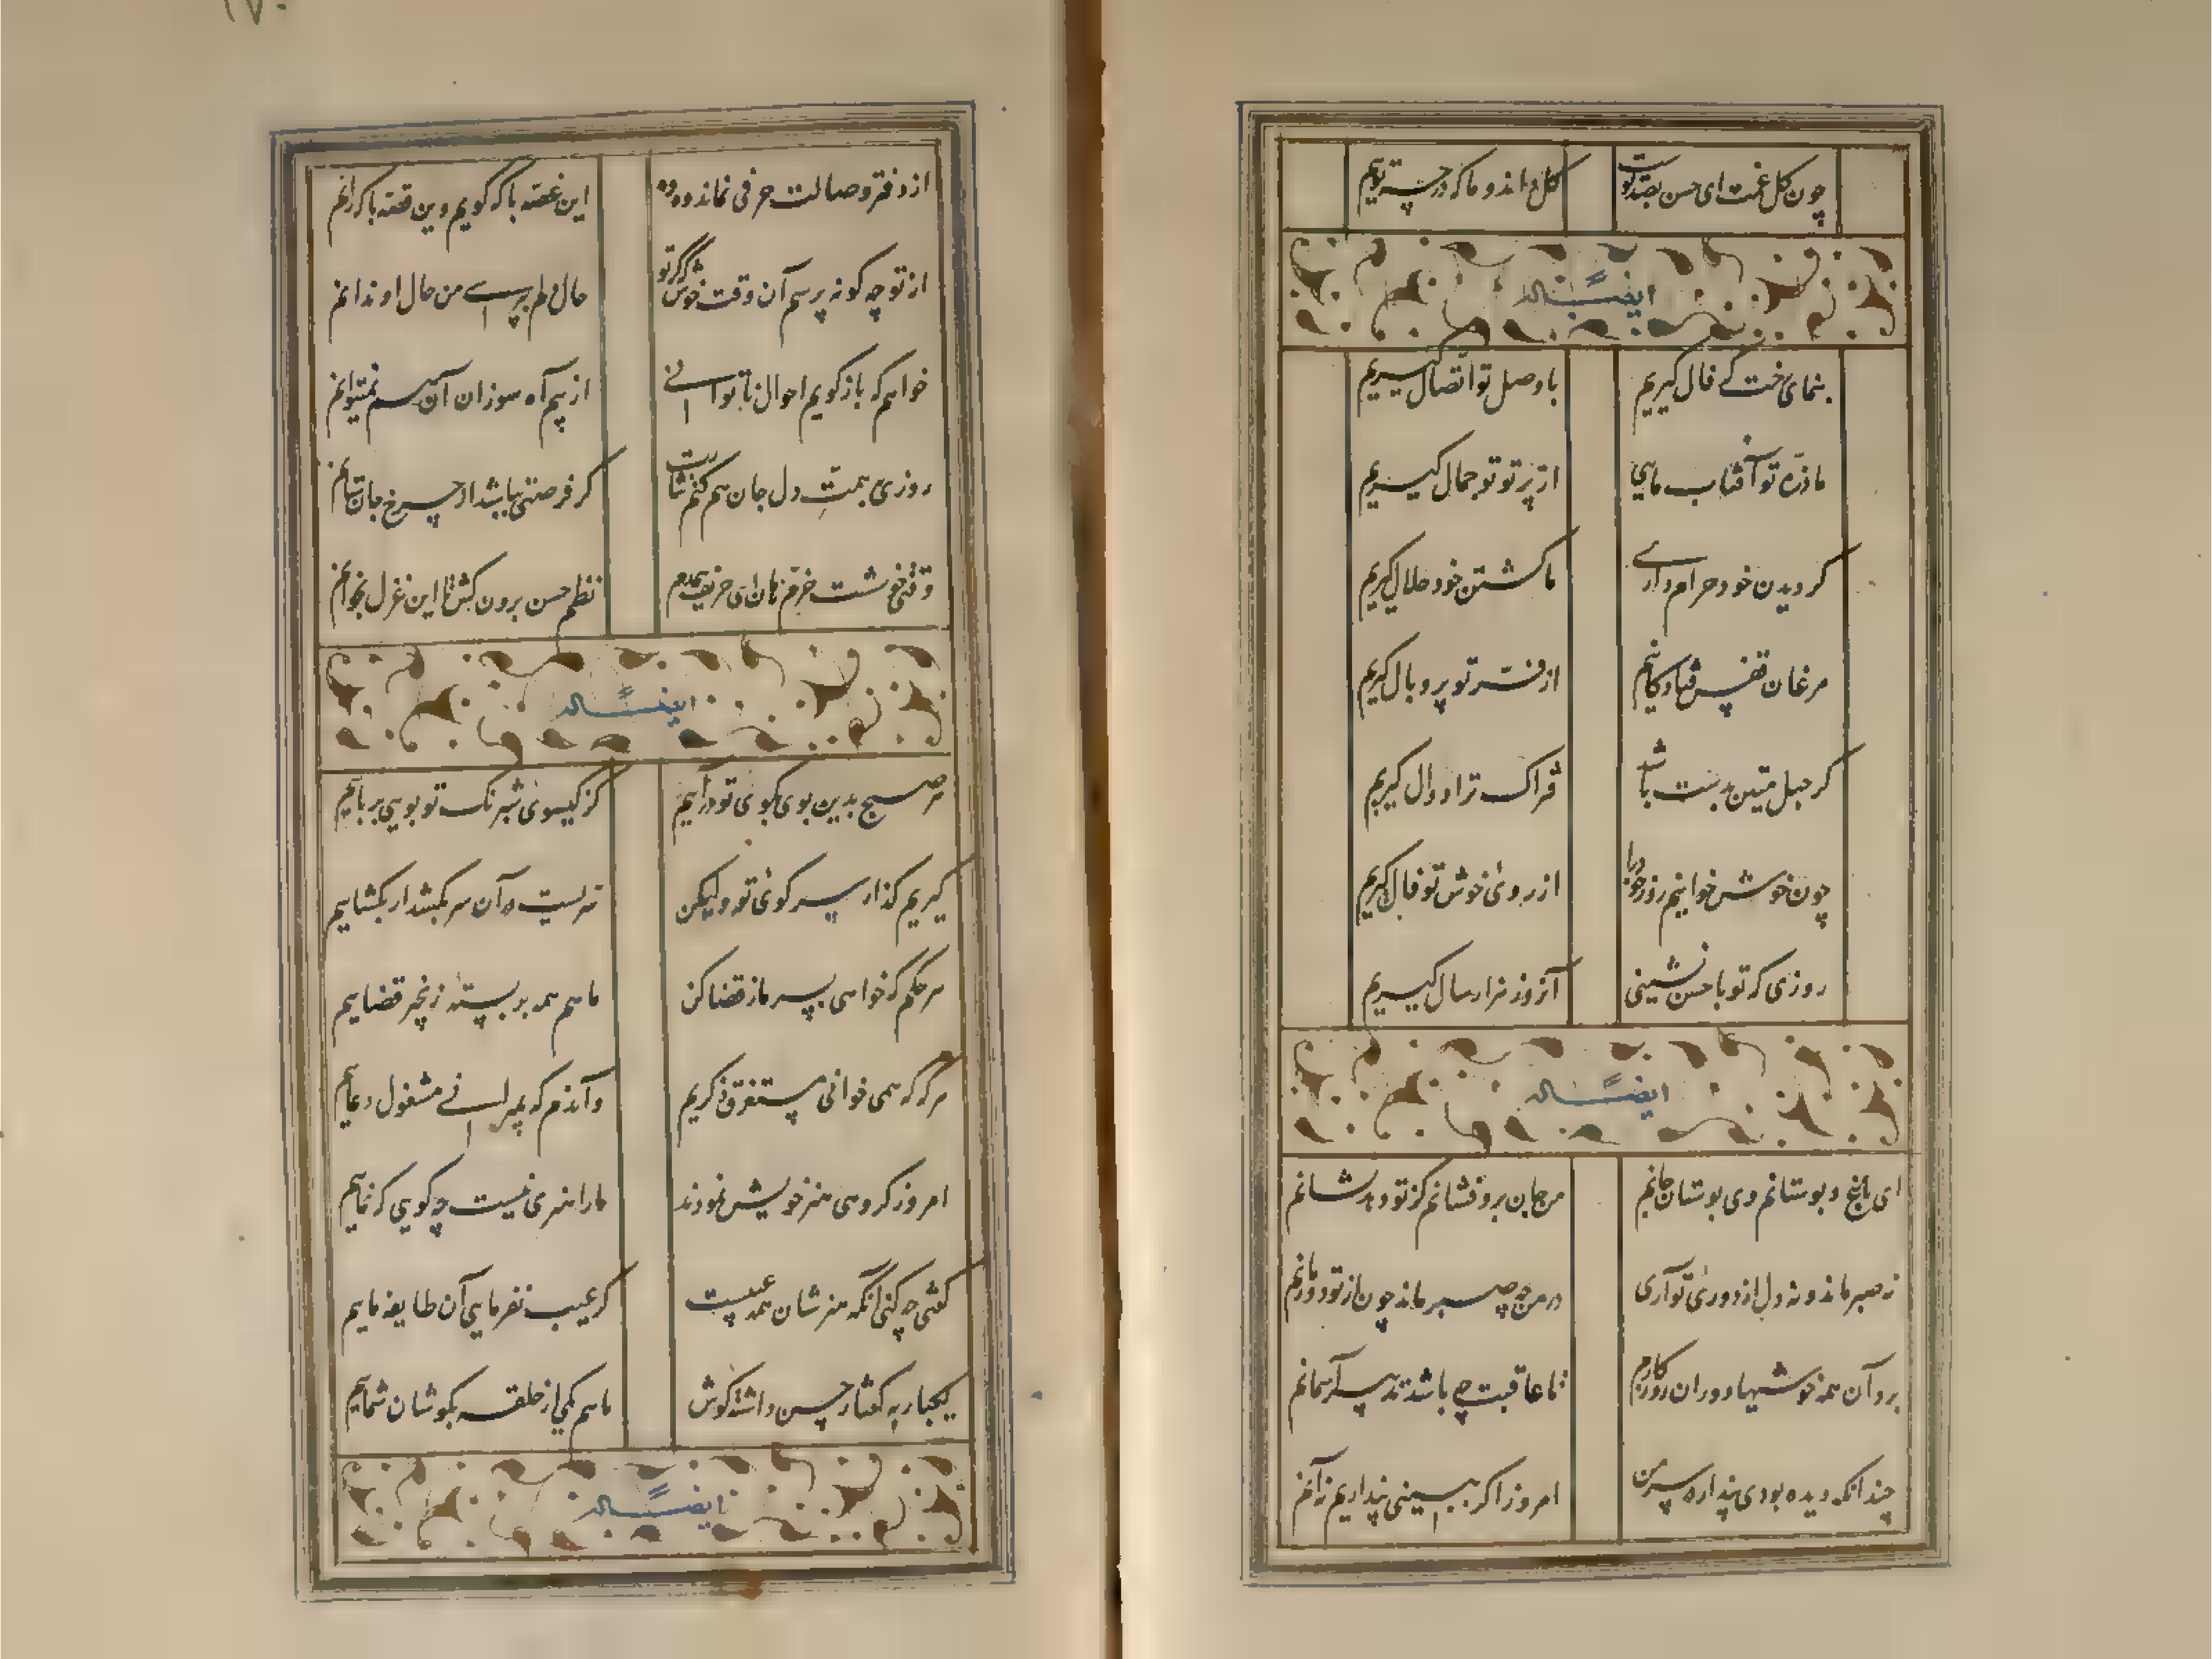 چون کل غمت ای حسن بصد توست کل ماند و ما که در چه تدبیریم
ایضاً له
بنمای رخت که فال گیریم با وصل تو اتصال گیریم
ما ذره تو آفتاب مایی از پرتو تو جمال گیریم
گر دیدن خود حرام داری ما کشتن خود حلال گیریم
مرغان قفس فتادگانیم از فر تو پر و بال گیریم
گر حبل متین بدست باشد فتراک ترا دوال گیریم
چون خوش خوانیم روز خود را از روی خوش تو فال گیریم
روزی که تو با حسن نشینی آنروز هزار سال گیریم
ایضاً له
ای باغ و بوستانم وی بوستان جانم من جان برو فشانم کز تو دهد نشانم
نه صبر ماند و نه دل از دوری تو آری در من چه صبر ماند چون از تو دور مانم
برد آن همه خوشیها دوران روزگارم تا عاقبت چه باشد تدبیر آسمانم
چندانکه دیده بودی پندار در سر من امروز اگر ببینی پنداریم نه آنم
۱۷۰
از دفتر وصالت حرفی نماند وه وه این غصه با که گویم وین قصه با که رانم
از تو چه گونه پرسم آن وقت خوش که گر تو حال دلم بپرسی من حال او ندانم
خواهم که باز گویم احوال ناتوانی از بیم آه سوزان آن هم نمیتوانم
روزی بهمت دل جان هم کنم نثارت گر فرصتی بیابد از چرخ جان ستانم
وقتی خوشست خرم هان ای حریف همدم نظم حسن برون کش تا این غزل بخوانم
ایضاً له
هر صبح بدین بوی بکوی تو درآییم کز گیسوی شبرنگ تو بویی بربایم
گیریم گذار سر کوی تو ولیکن نه بست در آن سر بگشد ار بگشاییم
هر حکم که خواهی بسر ما ز قضا کن ما هم همه بر بسته زنجیر قضاییم
هر گه که همی خوانی مستغرق ذکریم وآندم که برانی مشغول دعاییم
امروز گروهی هنر خویش نمودند ما را هنری نیست چه گویی که نماییم
گفتی چه کنی آنکه هنرشان همه عیبست گر عیب نفرمایی آن طایفه ماییم
یکبار به گفتار حسن داشته گوش ما هم یکی از حلقه بگوشان شماییم
ایضاً له